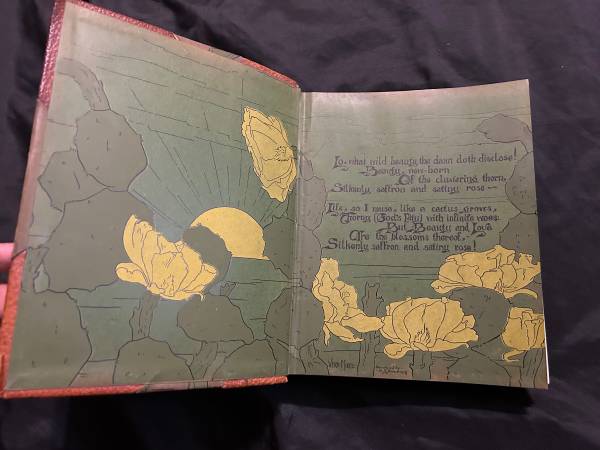 Lo, what wild beauty the dawn doth disclose!
Beauty, new-born
Of the clustering thorn,
Silkenly saffron and satiny rose—
Life, so I muse, like a cactus grows,
Thorny (God's Pity) with infinite woes:
But Beauty and Love
Are the blossoms thereof,
Silkenly saffron and satiny rose!